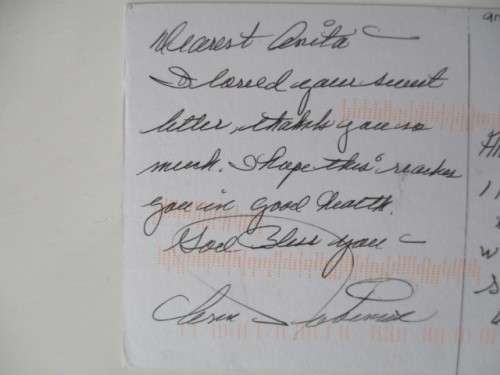 Dearest Anita
I loved your sweet
letter, thanks you so
much. I hope this reaches
you in good health.
God Bless you